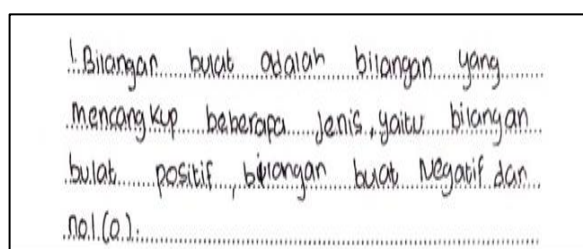 1. Bilangan bulat adalah bilangan yang
mencangkup beberapa jenis, yaitu bilangan
bulat positif, bilangan buat Negatif dan
nol (0).